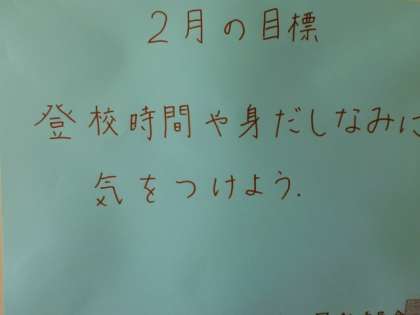 2月の目標
登校時間や身だしなみに
気をつけよう.